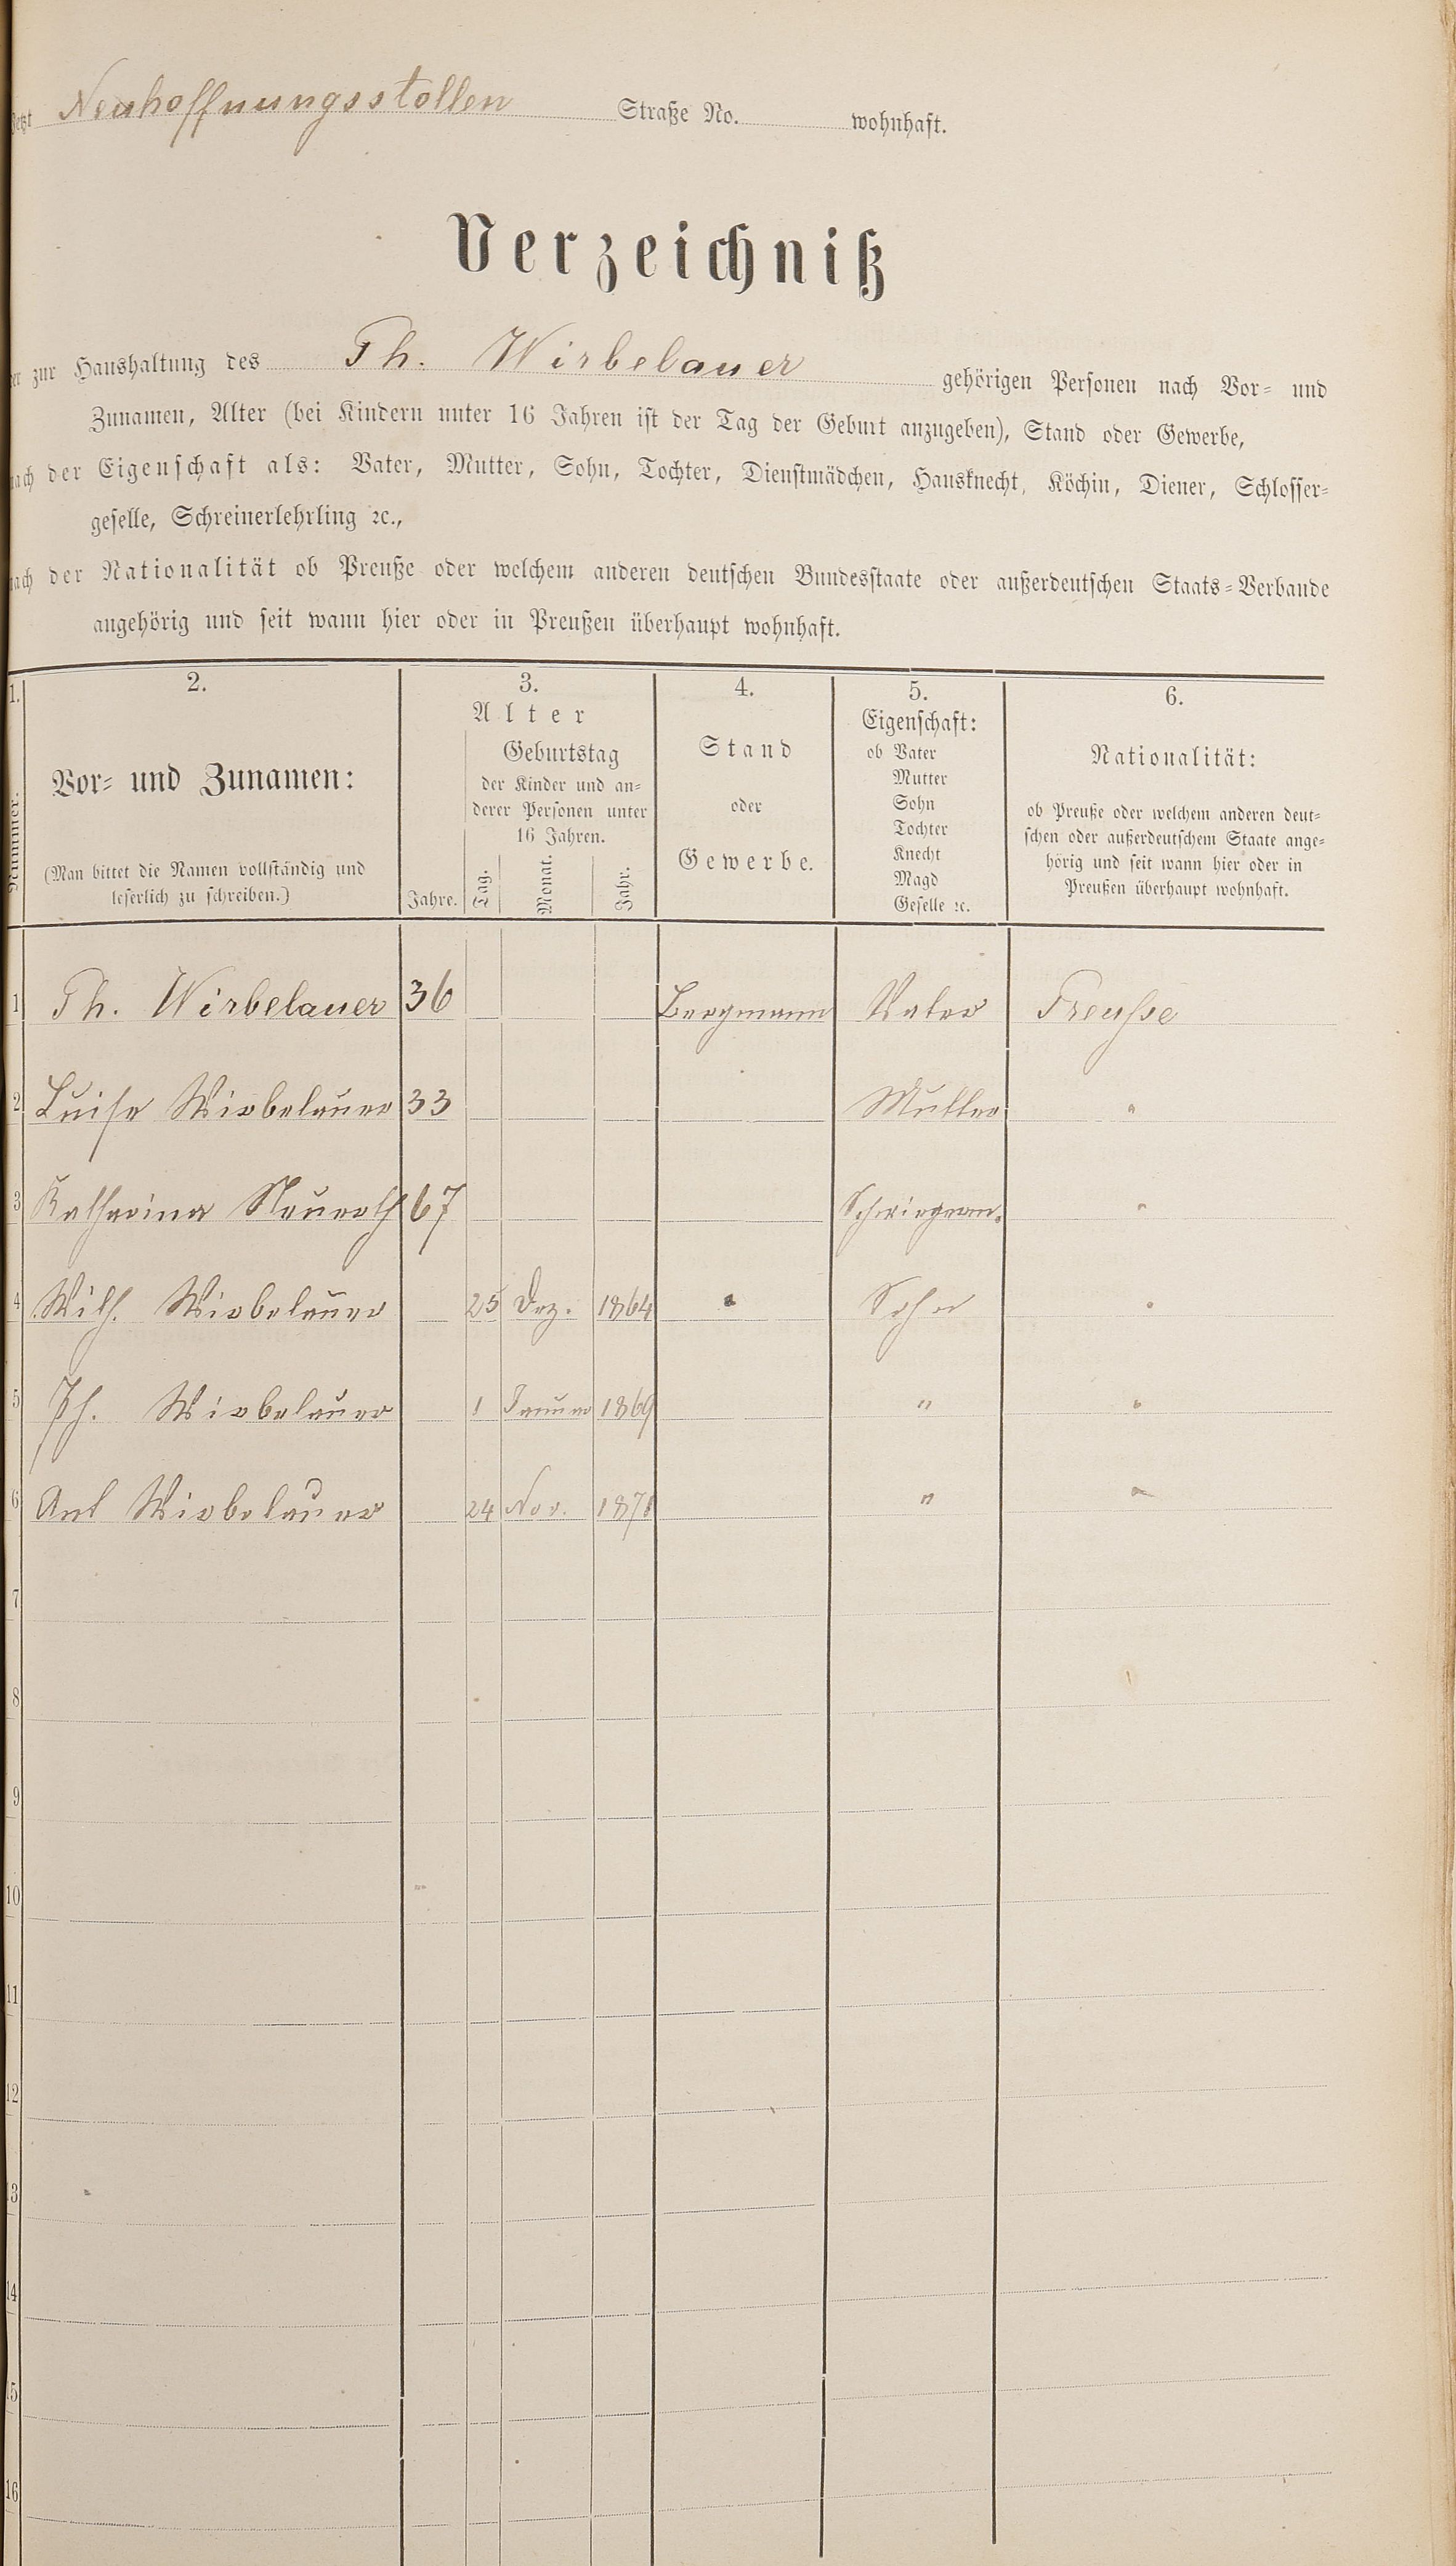 Jetzt Neuhoffnungsstollen Straße No. wohnhaft.
Verzeichniß
der zur Haushaltung des Ph. Wirbelauer gehörigen Personen nach Vor- und
Zunamen, Alter (bei Kindern unter 16 Jahren ist der Tag der Geburt anzugeben), Stand oder Gewerbe,
nach der Eigenschaft als: Vater, Mutter, Sohn, Tochter, Dienstmädchen, Hausknecht, Köchin, Diener, Schlosser-
geselle, Schreinerlehrling ꝛc.,
nach der Nationalität ob Preuße oder welchem anderen deutschen Bundesstaate oder außerdeutschen Staats-Verbande
angehörig und seit wann hier oder in Preußen überhaupt wohnhaft.
1. 2. 3. 4. 5. 6.
Nummer.
Vor- und Zunamen:
(Man bittet die Namen vollständig und
leserlich zu schreiben.)
Alter
Jahre.
Geburtstag
der Kinder und an-
derer Personen unter
16 Jahren.
Tag. Monat. Jahr.
Stand
oder
Gewerbe.
Eigenschaft:
ob Vater
Mutter
Sohn
Tochter
Knecht
Magd
Geselle ꝛc.
Nationalität:
ob Preuße oder welchem anderen deut-
schen oder außerdeutschem Staate ange-
hörig und seit wann hier oder in
Preußen überhaupt wohnhaft.
1 Ph. Wirbelauer 36 Bergmann Vater Preuße
2 Luise Wirbelauer 33 Mutter "
3 Katharina Neuroth 67 "
4 Wilh. Wirbelauer 25 Dez. 1864 " Sohn "
5 Ph. Wirbelauer 1 Januar 1869 " "
6 Ant Wirbelauer 24 Nov. 1871 " "
7
8
9
10
11
12
13
14
15
16